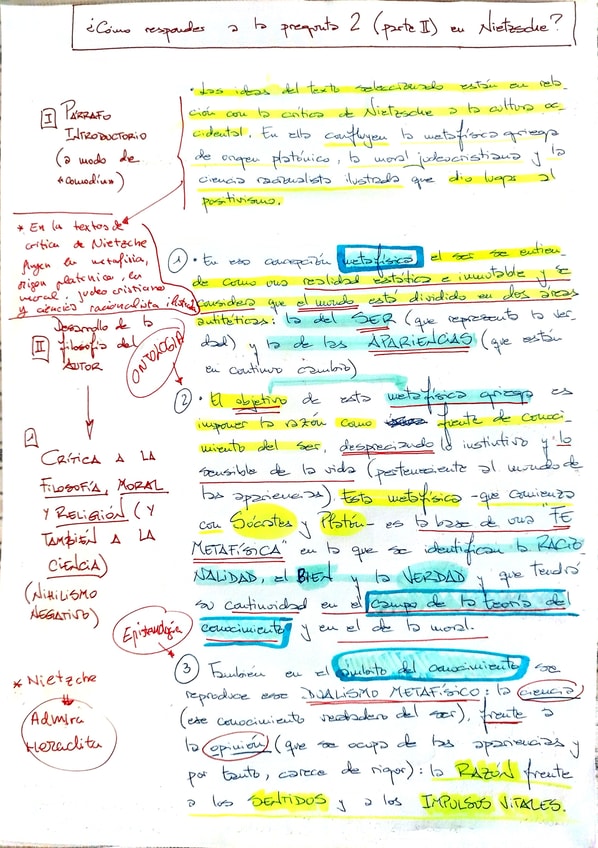 ¿Cómo responder a la pregunta 2 (parte II) en Nietzsche?
I PÁRRAFO
INTRODUCTORIO
(a modo de
"comodín")
• Las ideas del texto seleccionado están en rela-
ción con la crítica de Nietzsche a la cultura oc-
cidental. En ella confluyen la metafísica griega
de origen platónico, la moral judeocristiana y la
ciencia racionalista ilustrada que dio lugar al
positivismo.
* En la textos de
crítica de Nietzche
fluyen la metafísia,
origen platonico, la
moral, judeo cristiano
y ciencia racionalista ilustra
II Desarrollo de la
filosofía del
AUTOR
1
CRÍTICA A LA
FILOSOFÍA, MORAL
Y RELIGIÓN (Y
TAMBIÉN A LA
CIENCIA)
(NIHILISMO
NEGATIVO)
* Nietzche
Admira
Heraclito
ONTOLOGIA
1 • En esa concepción metafísica el ser se entien-
de como una realidad estática e inmutable y se
considera que el mundo está dividido en dos áreas
antitéticas: la del SER (que representa la ver-
dad) y la de las APARIENCIAS (que están
en continuo cambio)
2 • El objetivo de esta metafísica griega es
imponer la razón como fuente de conoci-
miento del ser, despreciando lo instintivo y lo
sensible de la vida (perteneciente al mundo de
las apariencias). Esta metafísica -que comienza
con Sócrates y Platón- es la base de una "FE
METAFÍSICA" en la que se identifican la RACIO
NALIDAD, el BIEN y la VERDAD y que tendrá
su continuidad en el campo de la teoría del
conocimiento y en el de la moral.
Epistemología
3 También en el ámbito del conocimiento se
reproduce ese DUALISMO METAFÍSICO: la ciencia
(ese conocimiento verdadero del ser), frente a
la opinión (que se ocupa de las apariencias y
por tanto, carece de rigor): la RAZÓN frente
a los SENTIDOS y a los IMPULSOS VITALES.